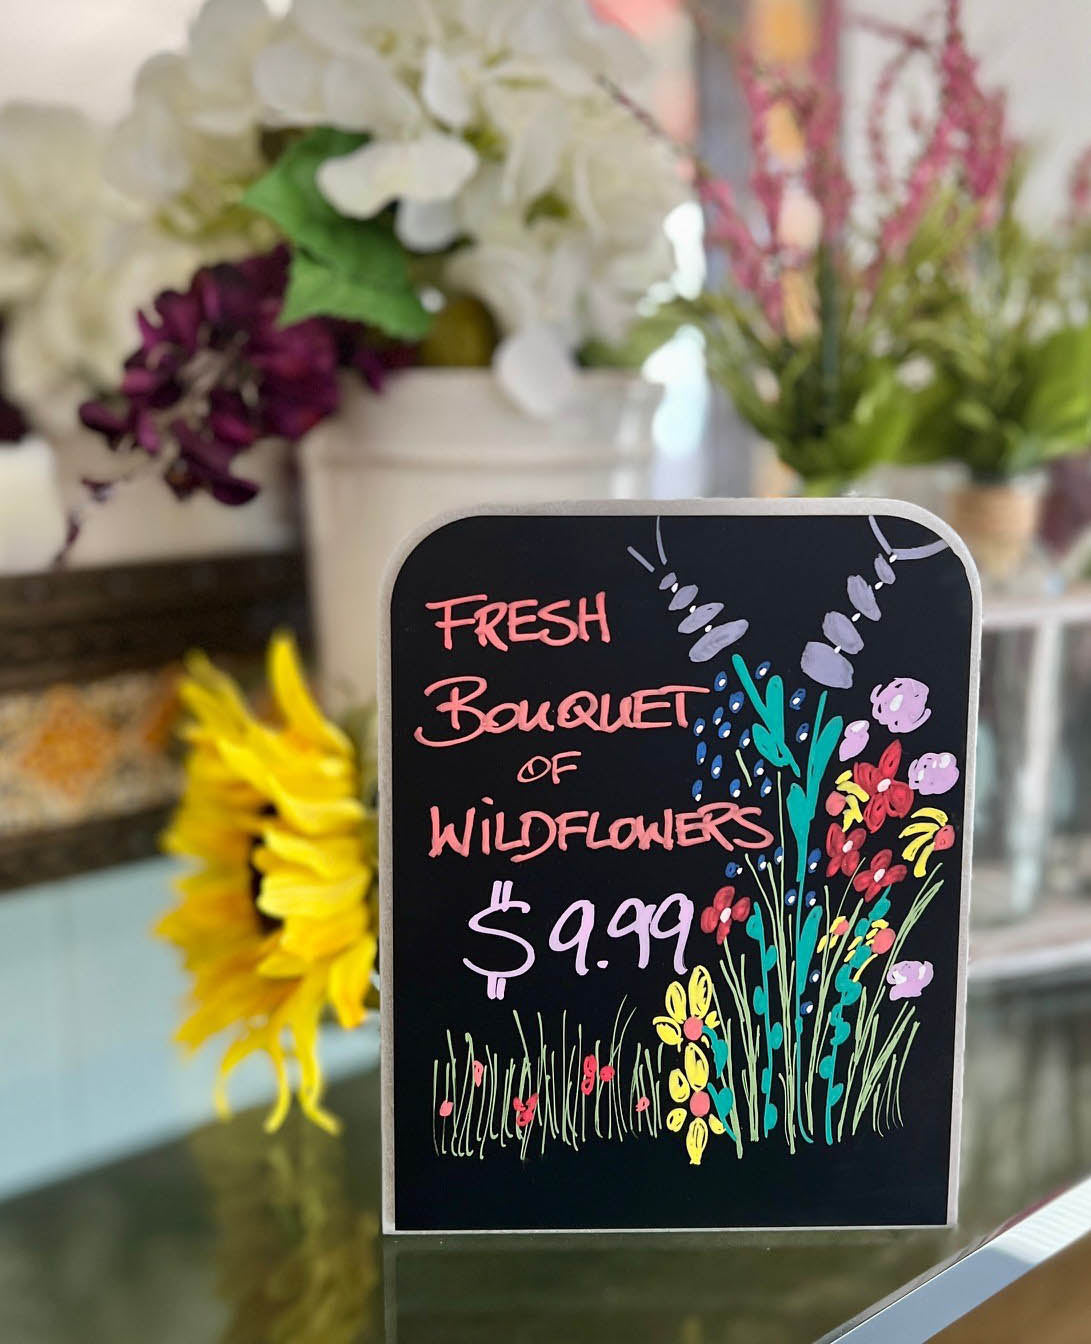 FRESH
BOUQUET
OF
WiLDFLOWERS
$9.99